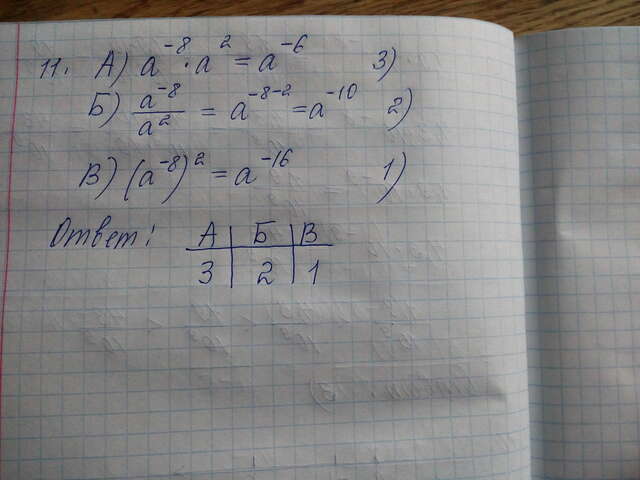 11. А) a⁻⁸ · a² = a⁻⁶ 3)
Б) a⁻⁸/a² = a⁻⁸⁻² = a⁻¹⁰ 2)
В) (a⁻⁸)² = a⁻¹⁶ 1)
Ответ: А Б В
3 2 1